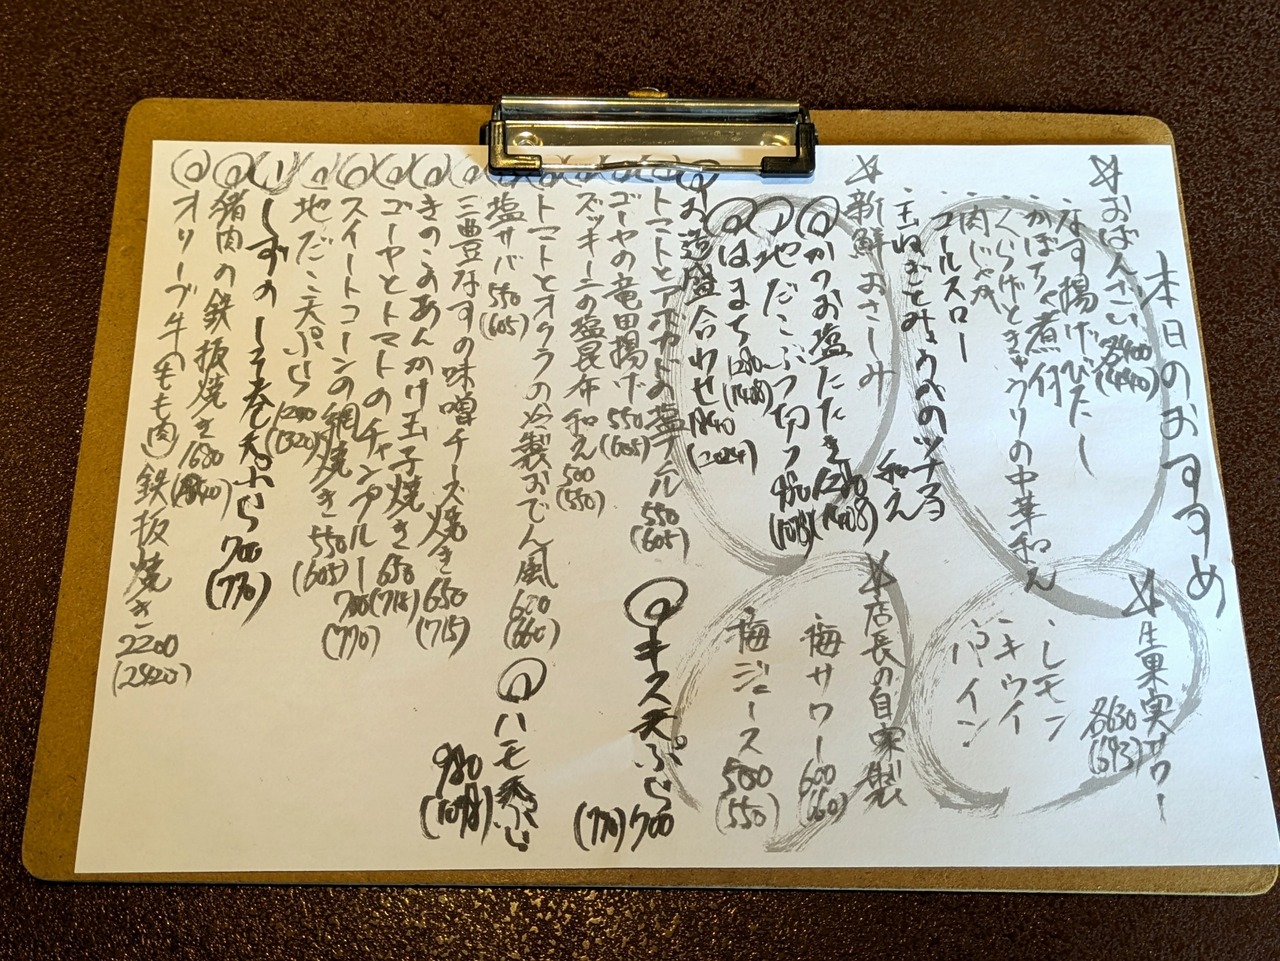 本日のおすすめ
☆おばんざい 各400
(440)
・なす揚げびたし
・かぼちゃ煮付
・くらげときゅうりの中華和え
・肉じゃが
・コールスロー
・玉ねぎとみょうがのツナ
和え
☆生果実サワー
各630
(693)
・レモン
・キウイ
・パイン
☆新鮮おさしみ
◎かつお塩たたき 1280
(1408)
地だこぶつ切り 980
(1078)
◎はまち 1280
(1408)
お造盛合わせ 1840
(2024)
☆店長の自家製
・梅サワー 600
(660)
・梅ジュース 500
(550)
トマトとアボカドの塩ナムル 550
(605)
◎キス天ぷら 700
(770)
ゴーヤの竜田揚げ 550
(605)
ズッキーニの塩昆布和え 500
(550)
トマトとオクラの冷製おでん風 600
(660)
塩サバ 550
(605)
ハモ天ぷら
980
(1078)
三豊なすの味噌チーズ焼き 650
(715)
きのこあんかけ玉子焼き 650
(715)
ゴーヤとトマトのチャンプルー 700
(770)
スイートコーンの網焼き 550
(605)
地だこ天ぷら 1200
(1320)
しそ巻天ぷら 700
(770)
猪肉の鉄板焼き 1680
(1840)
オリーブ牛(もも肉)鉄板焼き 2200
(2420)